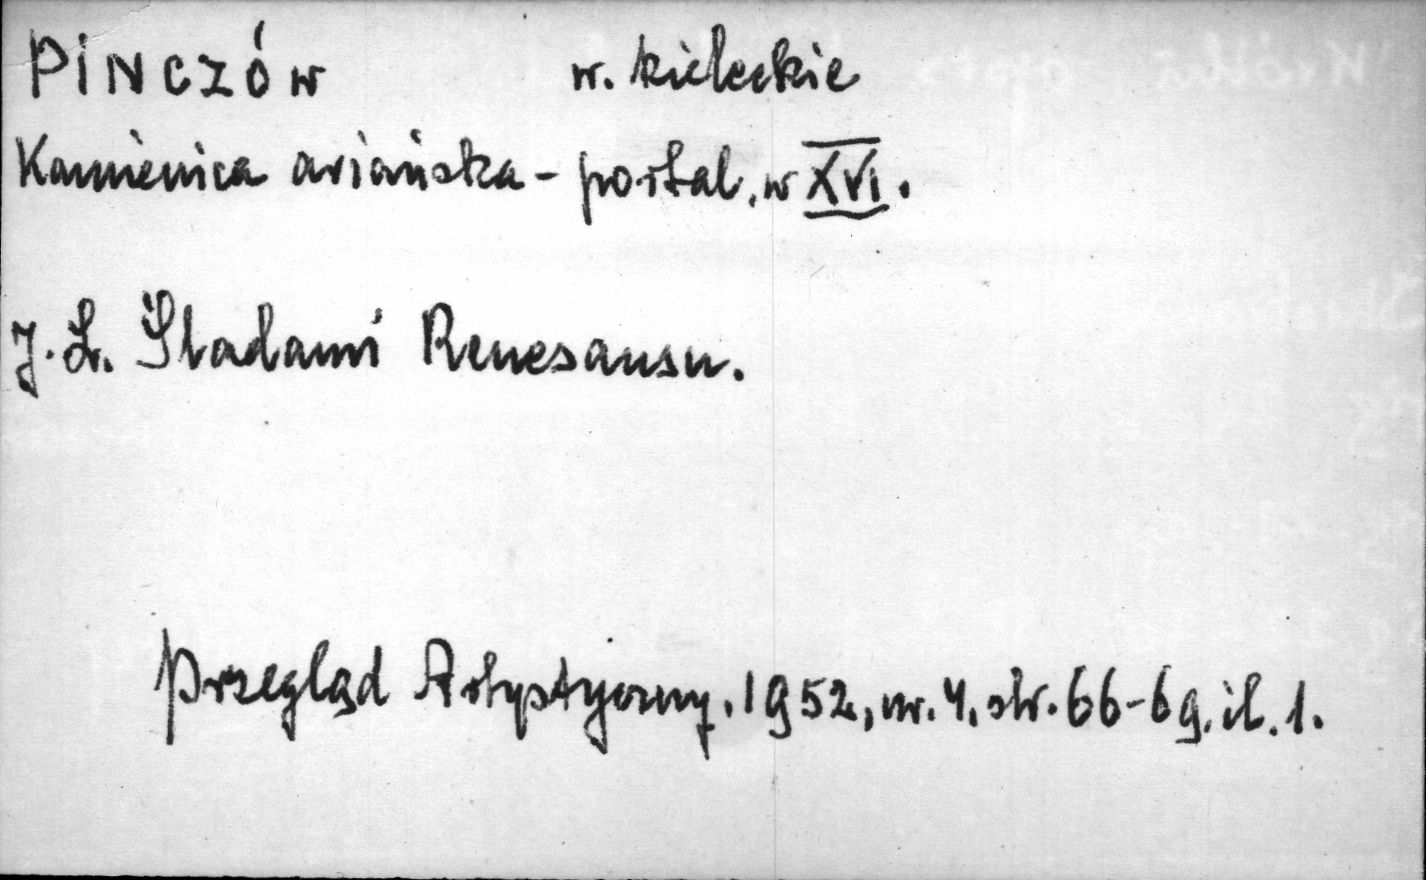 PINCZÓW w. kieleckie
Kamienica ariańska - portal, w XVI.
J. Ł. Śladami Renesansu.
Przegląd Artystyczny, 1952, nr. 4, str. 66-69, il. 1.